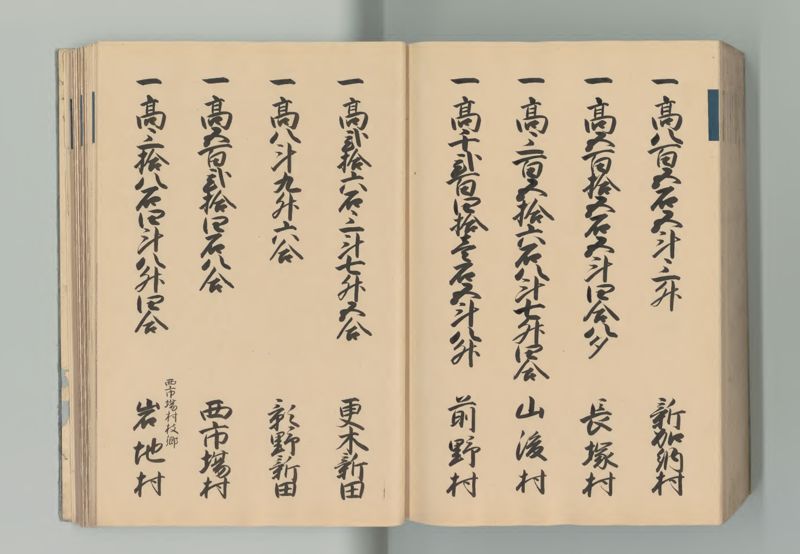 一高八百五石五斗三升 新加納村
一高五百拾五石五斗四合八夕 長塚村
一高三百五拾六石八斗七升四合 山後村
一高千弐百四拾壱石五斗八升 前野村
一高弐拾六石三斗七升五合 更木新田
一高八斗九升六合 野新田
一高五百弐拾四石八合 西市場村
西市場村枝郷
一高三拾八石四斗八升四合 岩地村